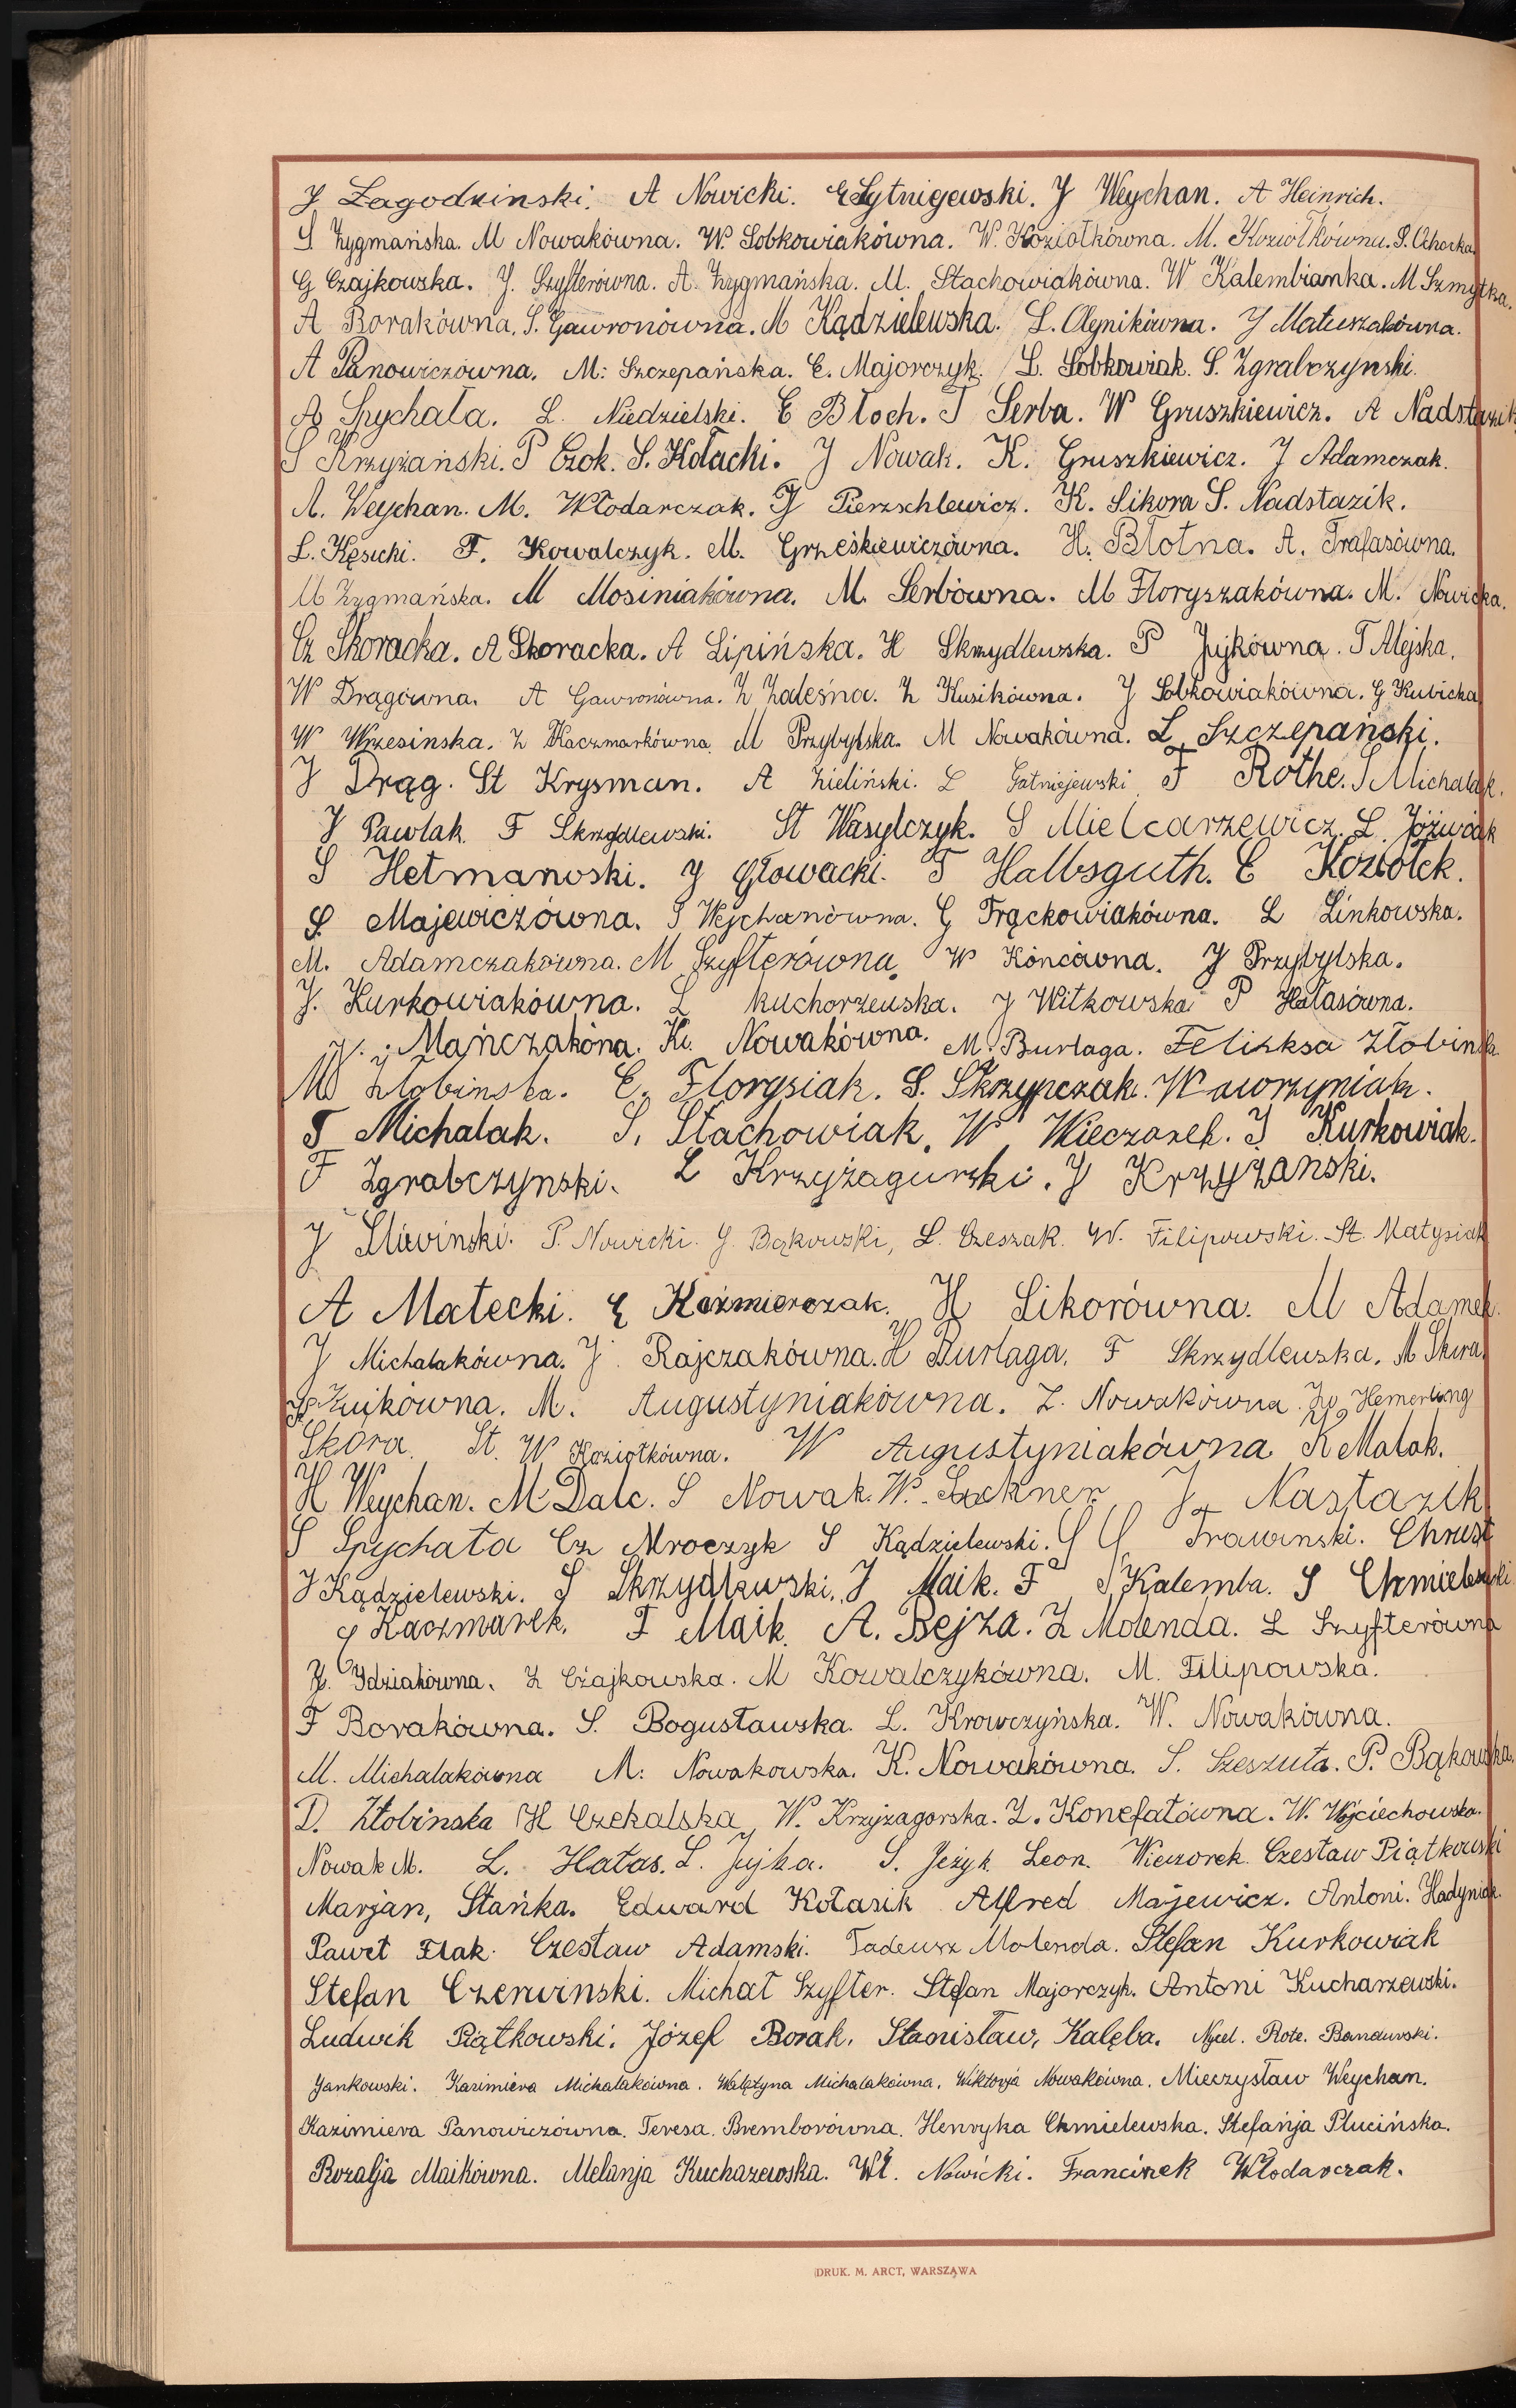 J Łagodzinski. A Nowicki. E Sytnigewski. J Weychan. A Heinrich.
S. Zygmańska. M Nowakówna. W. Sobkowiakówna. W. Koziołkówna. M. Koziołkówna. S. Cichocka.
G Czajkowska. J. Szyfterówna. A. Zygmańska. M. Stachowiakówna. W Kalembianka. M Szmytka.
A Borakówna. S. Gawronówna. M Kądzielewska. L. Olejnikówna. J Matuszakówna.
A Panowiczówna. M. Szczepańska. E. Majorczyk. L. Sobkowiak. S. Zgrabczynski.
A Spychała. L. Niedzielski. E Błoch. J Serba. W Gruszkiewicz. A Nadstazik
S Krzyżański. P Czok. S. Kołacki. J Nowak. K. Gruszkiewicz. J Adamczak.
A. Weychan. M. Włodarczak. J Pierzschlewicz. K. Sikora S. Nadstazik.
L. Kęsicki. F. Kowalczyk. M. Grześkiewiczówna. H. Błotna. A. Trafasówna.
M Zygmańska. M Mosiniakówna. M. Serbówna. M Floryszakówna. M. Nowicka.
Cz Skoracka. A Skoracka. A Lipińska. H Skrzydlewska. P Jujkówna. T Alejska.
W Drągówna. A Gawronówna. Z Zaleśna. Z Kusikówna. J Sobkowiakówna. G Kubicka
W Wrzesinska. Z Kaczmarkówna. M Przybylska. M Nowakówna. L Szczepański.
J Drąg. St Krysman. A Zieliński. L Gatniejewski F Rothe. S Michalak.
J Pawlak. F Skrzydlewski. St Wasylczyk. S Mielcarzewicz. L. Jóźwiak
S Hetmanoski. J Głowacki. T Halbsguth. E Koziołek.
S Majewiczówna. S Wejchanówna. G Frąckowiakówna. L Linkowska.
M. Adamczakówna. M Szyfterówna. W Końcówna. J Przybylska.
J. Kurkowiakówna. L Kuchorzewska. J Witkowska P Hałasówna.
W. Mańczakóna. K. Nowakówna. M. Burlaga. Felizksa Złobinska.
M Złobinska. E. Florysiak. S. Skrzypczak. Wawrzyniak.
T Michalak. S. Stachowiak. W. Wieczorek. J Kurkowiak.
F Zgrabczynski. L Krzyżagurski. J Krzyżanski.
J Sliwinski. P. Nowicki. J. Bąkowski, L. Czeszak. W. Filipowski. St. Matysiak
A Małecki. E Kaźmierczak. H Sikorówna. M Adamek.
J Michalakówna. J. Rajczakówna. H Burlaga. F Skrzydlewska. M Skura.
Kuikówna. M. Augustyniakówna. Z. Nowakówna. Hemerling
Skóra. St. W Koziołkówna. W Augustyniakówna K Malak.
H Weychan. M Dalc. S Nowak. W. Lockner. J. Nastazik
S Spychała Cz Mroczyk S Kądzielewski. Trawinski. Chrust
J Kądzielewski. S Skrzydlewski. J Maik. F S. Kalemba. S Chmielewski
G Kaczmarek. F Maik. A. Bejza. Z Molenda. L Szyfterówna
J. Idziakówna. Z Czajkowska. M Kowalczykówna. M. Filipowska.
F Borakówna. S. Bogusławska. L. Krowczyńska. W. Nowakówna.
M. Michalakówna M. Nowakowska. K. Nowakówna. S. Szeszuła. P. Bąkowska.
D. Złobinska H Czekalska W. Krzyżagorska. Z. Konefałówna. W. Wojciechowska.
Nowak M. L. Hałas. L. Jujka. S. Jeżyk Leon. Wieczorek. Czesław Piątkowski
Marjan, Stańka. Edward Kołasik Alfred Majewicz. Antoni. Hadyniak.
Paweł Flak. Czesław Adamski. Tadeusz Molenda. Stefan Kurkowiak
Stefan Czerwinski. Michał Szyfter. Stefan Majorczyk. Antoni Kucharzewski.
Ludwik Piątkowski. Józef Borak. Stanisław, Kalęba. Nycel. Rote. Bandurski.
Jankowski. Kazimiera Michalakówna. Walętyna Michalakówna. Wiktorja Nowakówna. Mieczysław Weychan.
Kazimiera Panowiczówna. Teresa. Bremborówna. Henryka Chmielewska. Stefańja Plucińska.
Rozalja Maikówna. Melanja Kucharewska. Wł. Nowicki. Francizek Włodarczak.
DRUK. M. ARCT, WARSZAWA